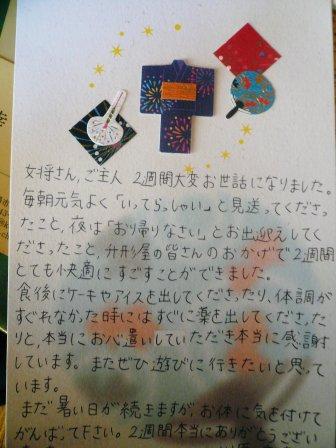 女将さん,ご主人 2週間大変お世話になりました。
毎朝元気よく「いってらっしゃい」と見送ってくださっ
たこと,夜は「お帰りなさい」とお出迎えしてく
ださったこと,升形屋の皆さんのおかげで2週間
とても快適にすごすことができました。
食後にケーキやアイスを出してくださったり,体調が
すぐれなかった時にはすぐに薬を出してくださった
りと,本当にお心遣いしていただき本当に感謝
しています。またぜひ遊びに行きたいと思って
います。
まだ暑い日が続きますが,お体に気を付けて
がんばって下さい。2週間本当にありがとうござい